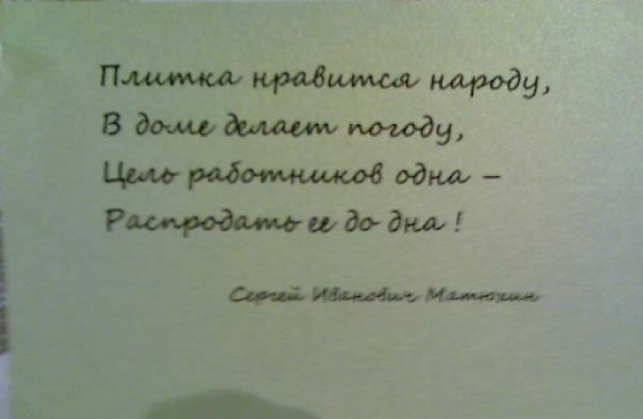 Плитка нравится народу,
В доме делает погоду,
Цель работников одна –
Распродать ее до дна !
Сергей Иванович Матюхин